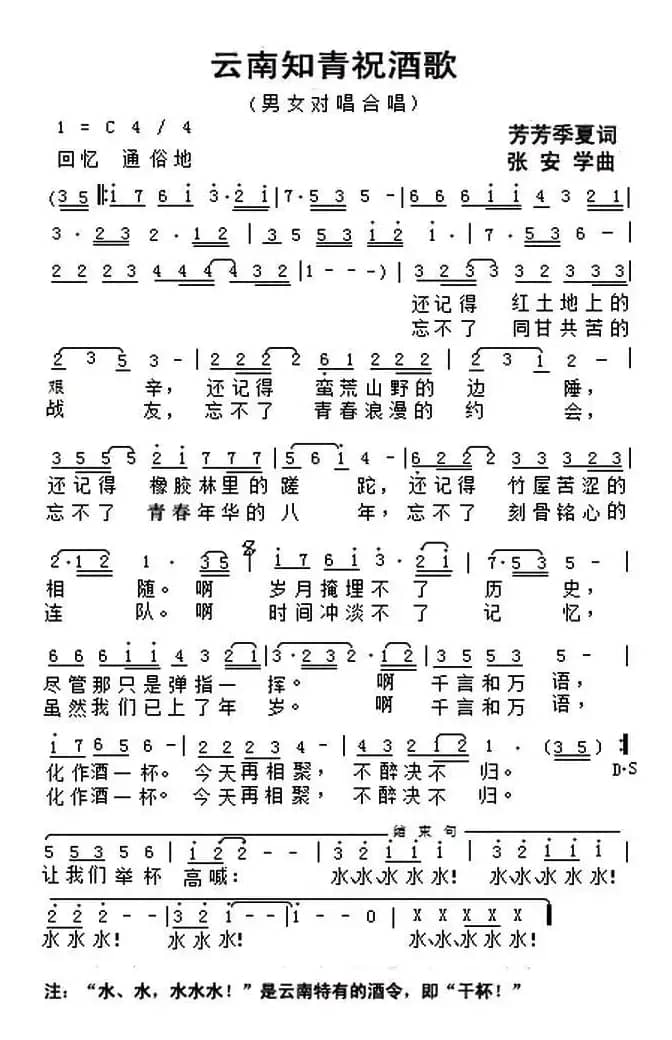 云南知青祝酒歌
(男女对唱合唱)
1 = C 4 / 4
芳芳季夏词
回忆 通俗地
张 安 学曲
(3 5 ‖: i 7 6 i 3· 2 i | 7· 5 3 5 - | 6 6 6 i i 4 3 2 1 |
3 · 2 3 2 · 1 2 | 3 5 5 3 i 2 i · | 7 · 5 3 6 - |
2 2 2 2 3 4 4 4 4 3 2 | 1 - - ) | 3 2 3 3 3 2 3 3 3 |
还记得 红土地上的
忘不了 同甘共苦的
2 3 5 3 - | 2 2 2 2 6 1 2 2 2 | 2 3 1 2 - |
艰 辛，还记得 蛮荒山野的 边 陲，
战 友，忘不了 青春浪漫的 约 会，
3 5 5 5 2 i 7 7 7 | 5 6 i 4 - | 6 2 2 2 3 3 2 3 |
还记得 橡胶林里的 蹉 跎，还记得 竹屋苦涩的
忘不了 青春年华的 八 年，忘不了 刻骨铭心的
2· 1 2 1 · 3 5 | i 7 6 i 3· 2 i | 7· 5 3 5 - |
相 随。啊 岁月掩埋不 了 历 史，
连 队。啊 时间冲淡不 了 记 忆，
6 6 6 i i 4 3 2 1 | 3· 2 3 2 · 1 2 | 3 5 5 3 5 - |
尽管那只是弹指一 挥。 啊 千言和万 语，
虽然我们已上了年 岁。 啊 千言和万 语，
i 7 6 5 6 - | 2 2 2 3 4 - | 4 3 2 1 2 1 · (3 5) :‖
化作酒一杯。今天再相聚， 不醉决不 归。 D·S
化作酒一杯。今天再相聚， 不醉决不 归。
结 束 句
5 5 3 5 6 | i 2 2 - - | 3 2 i i i | 3 2 i i i |
让我们举杯 高喊： 水、水、水 水 水！ 水、水、水 水 水！
2 2 2 - | 3 2 i - | i - - 0 | X X X X X ‖
水 水 水！ 水 水 水！ 水、水、水 水 水！
注：“水、水，水水水！”是云南特有的酒令，即“干杯！”